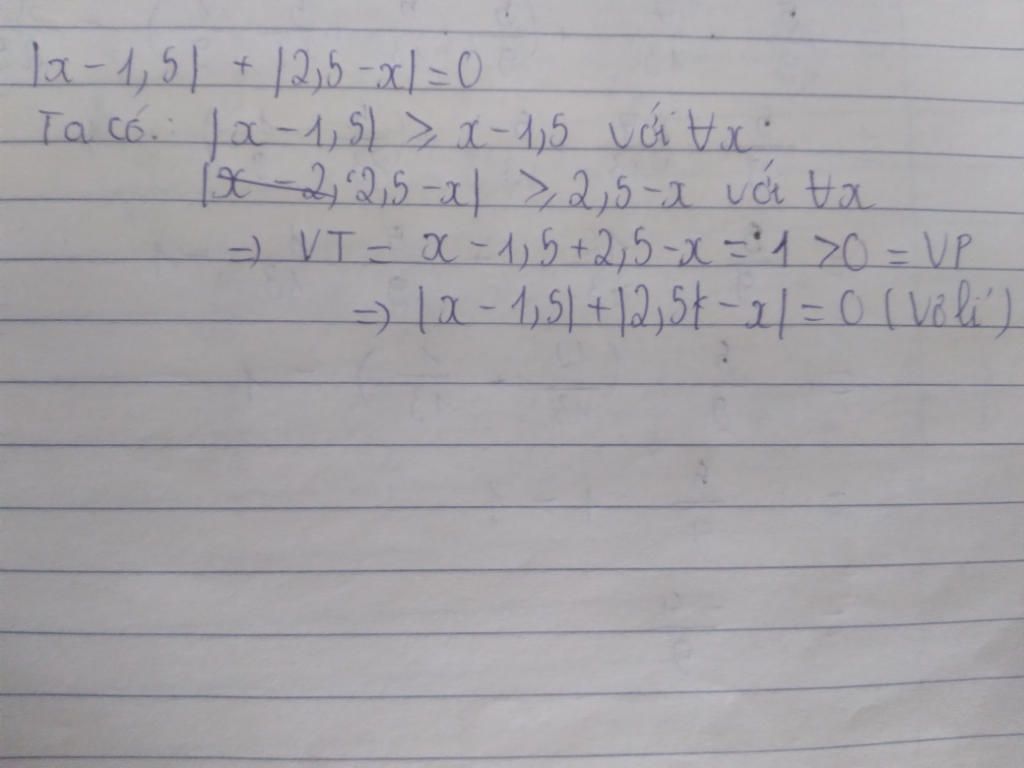 |x - 1,5| + |2,5 - x| = 0
Ta có: |x - 1,5| ≥ x - 1,5 với ∀x
|2,5 - x| ≥ 2,5 - x với ∀x
=> VT = x - 1,5 + 2,5 - x = 1 > 0 = VP
=> |x - 1,5| + |2,5 - x| = 0 (Vô lí)